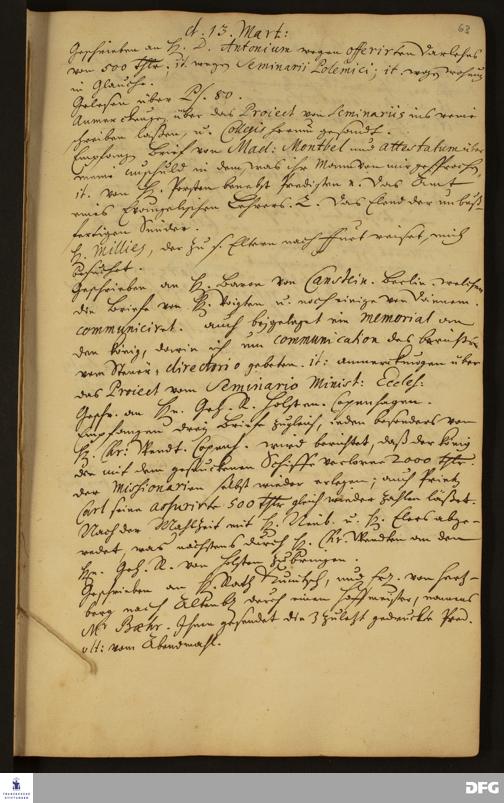 63
d. 13. Mart:
Geschrieben an H. D. Antonium wegen offerirten Darlehns
von 500 Thlr. it. wegen Seminarii Polemici; it. wegen
in Glauche.
Gelesen über Ps. 80.
Anmerckungen über das Project von Seminariis ins reine
schreiben laßen, u. Collegis herum gesandt.
Empfangen Brief von Mad: Montbel und attestatum über
meine unschuld in dem, was ihr Mann von mir gesprochen,
it. von H. Porsten benebst Predigten 1. Das Amt
eines Evangelischen Lehrers. 2. Das Elend der unbuß-
fertigen Sünder.
H. Millies, der zu s. Eltern nach Erfurt reiset, mich
besuchet.
Geschrieben an H. Baron von Canstein. Berlin, welchem
die Briefe von H. Voigten u. noch einige von
communiciret. auch beygeleget ein memorial an
den König, darin ich um communication des berichts
vom directorio gebeten. it: anmerckungen über
das Project vom Seminario Minist: Eccles:
Geschr. an Hn. Geh. R. Holsten. Copenhagen.
Empfangen drey Briefe zugleich, jeden besonders von
H. Chr: Wendt. Copenh. wird berichtet, daß der König
die mit dem gestrandeten Schiffe verlorne 2000 Thlr.
der Missionarien selbst wieder erlegen; auch Printz
Carl seine 500 Thlr gleich wieder zahlen läßet.
Nach der Mahlzeit mit H. Neub. u. H. Elers abge-
redet, was nächstens durch H. Chr. Wendten an den
Hn. Geh. R. von Holsten zu bringen.
Geschrieben an H. Rath und Frz. von Hertz-
berg nach durch einen Hoffmeister, namens
Mr Baehr. Ihnen gesendet die 3 zuletzt gedruckte Pred.
ult: vom Abendmahl.
FRANCKESCHE
STIFTUNGEN
DFG